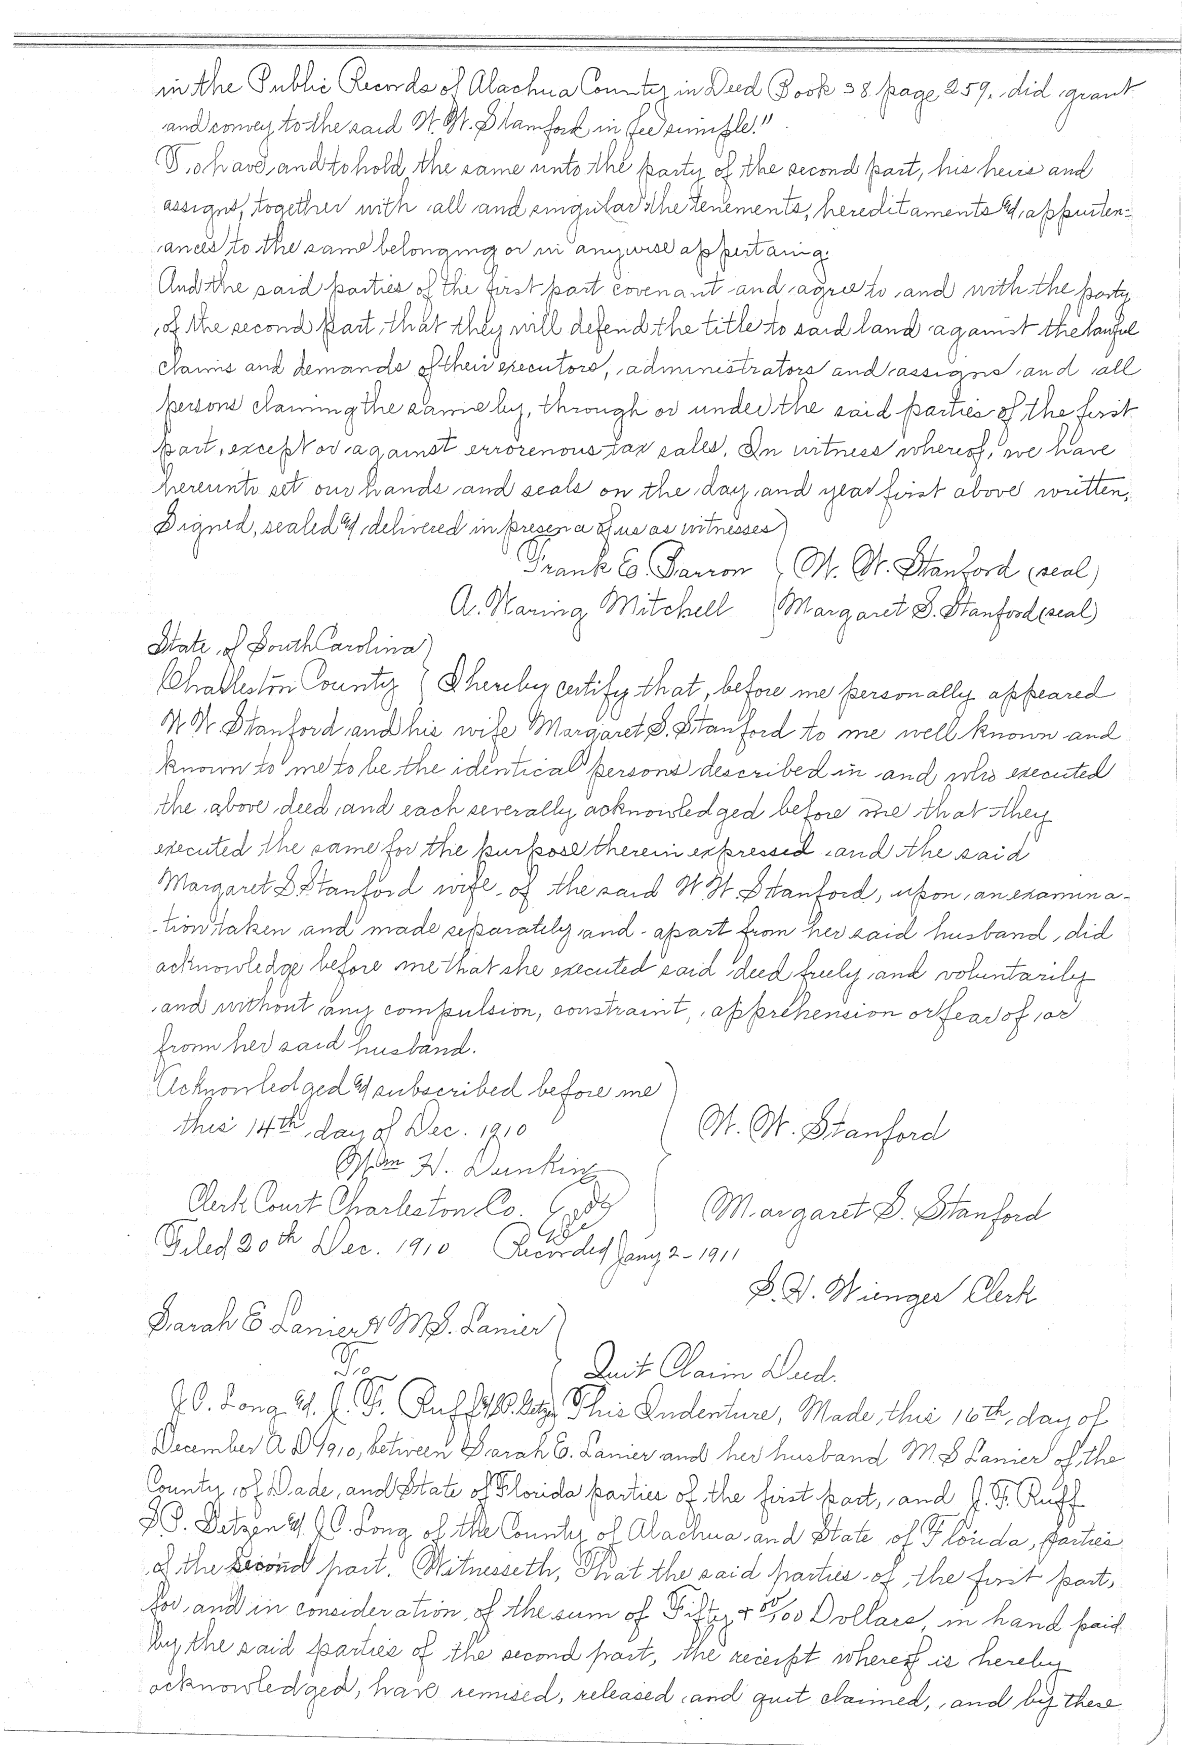 in the Public Records of Alachua County in Deed Book 38 page 259, did grant
and convey to the said W. W. Stamford in fee simple."
To have and to hold, the same unto the party of the second part, his heirs and
assigns, together with all and singular the tenements, hereditaments &, appurten=
ances to the same belonging or in anywise appertaing.
And the said parties of the first part covenant and agree to and with the party
of the second part, that they will defend the title to said land against the lawful
claims and demands of their executors, administrators and assigns and all
persons claming the same by, through or under the said parties of the first
part, except or against errorenous tax sales. In witness whereof, we have
hereunto set our hands and seals on the day and year first above written,
Signed, sealed & delivered in presence of us as witnesses)
Frank E. Barron } W. W. Stanford (seal)
A. Waring Mitchell } Margaret S. Stanford (seal)
State of South Carolina}
Charleston County } I hereby certify that, before me personally appeared
W W. Stanford and his wife Margaret S. Stanford to me well known and
known to me to be the identical persons described in and who executed
the above deed and each severally acknowledged before me that they
executed the same for the purpose therein expressed and the said
Margaret S Stanford wife of the said W. W. Stanford, upon an examina-
-tion taken and made separately and apart from her said husband, did
acknowledge before me that she executed said deed freely and voluntarily
and without any compulsion, constraint, apprehension or fear of or
from her said husband.
Acknowledged & subscribed before me
this 14th day of Dec. 1910 } W. W. Stanford
Wm H. Dunkin
Clerk Court Charleston Co. } Margaret S. Stanford
Filed 20th Dec. 1910 Recorded Jany 2-1911
S. H. Wienges Clerk
Sarah E Lanier & M S. Lanier }
To } Quit Claim Deed.
J. C. Long &. J. F. Ruff & S.P. Getzen This Indenture, Made, this 16th, day of
December A D 1910, between Sarah E. Lanier and her husband M. S Lanier of the
County of Dade, and State of Florida parties of the first part, and J. F. Ruff
S P. Getzen & J. C. Long of the County of Alachua and State of Florida, parties
of the second part. Witnesseth, That the said parties of the first part,
for and in consideration of the sum of Fifty & 00/100 Dollars, in hand paid
by the said parties of the second part, the receipt whereof is hereby
acknowledged, have remised, released and quit claimed, and by these